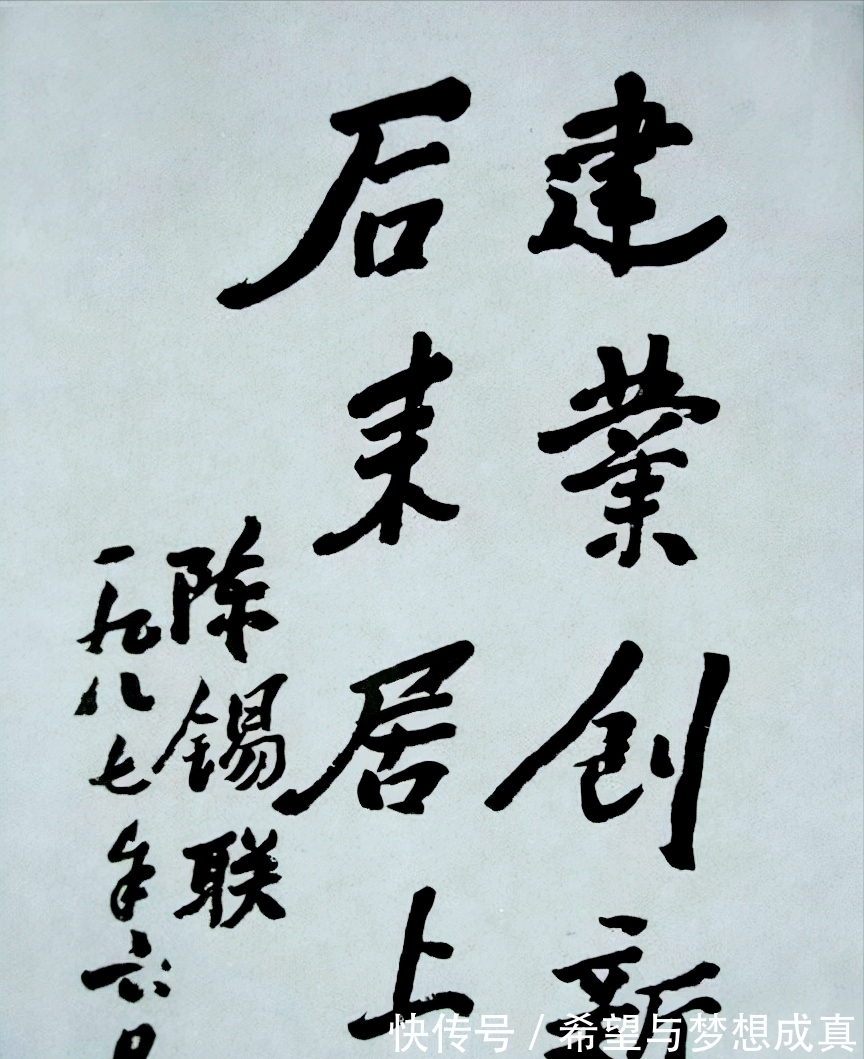 建業创新
后来居上
陈锡联
一九八七年六月
快传号 / 希望与梦想成真